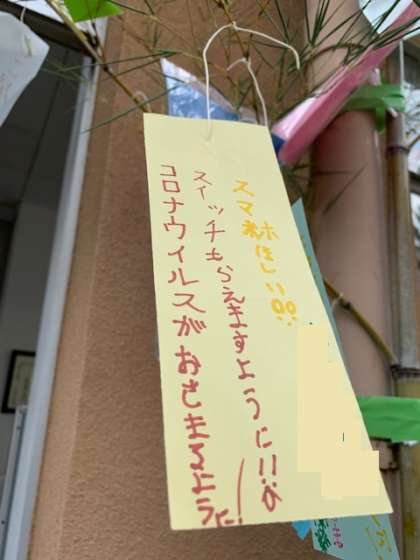 スマホほしい!!
スイッチもらえますように!!
コロナウイルスがおさまるように!